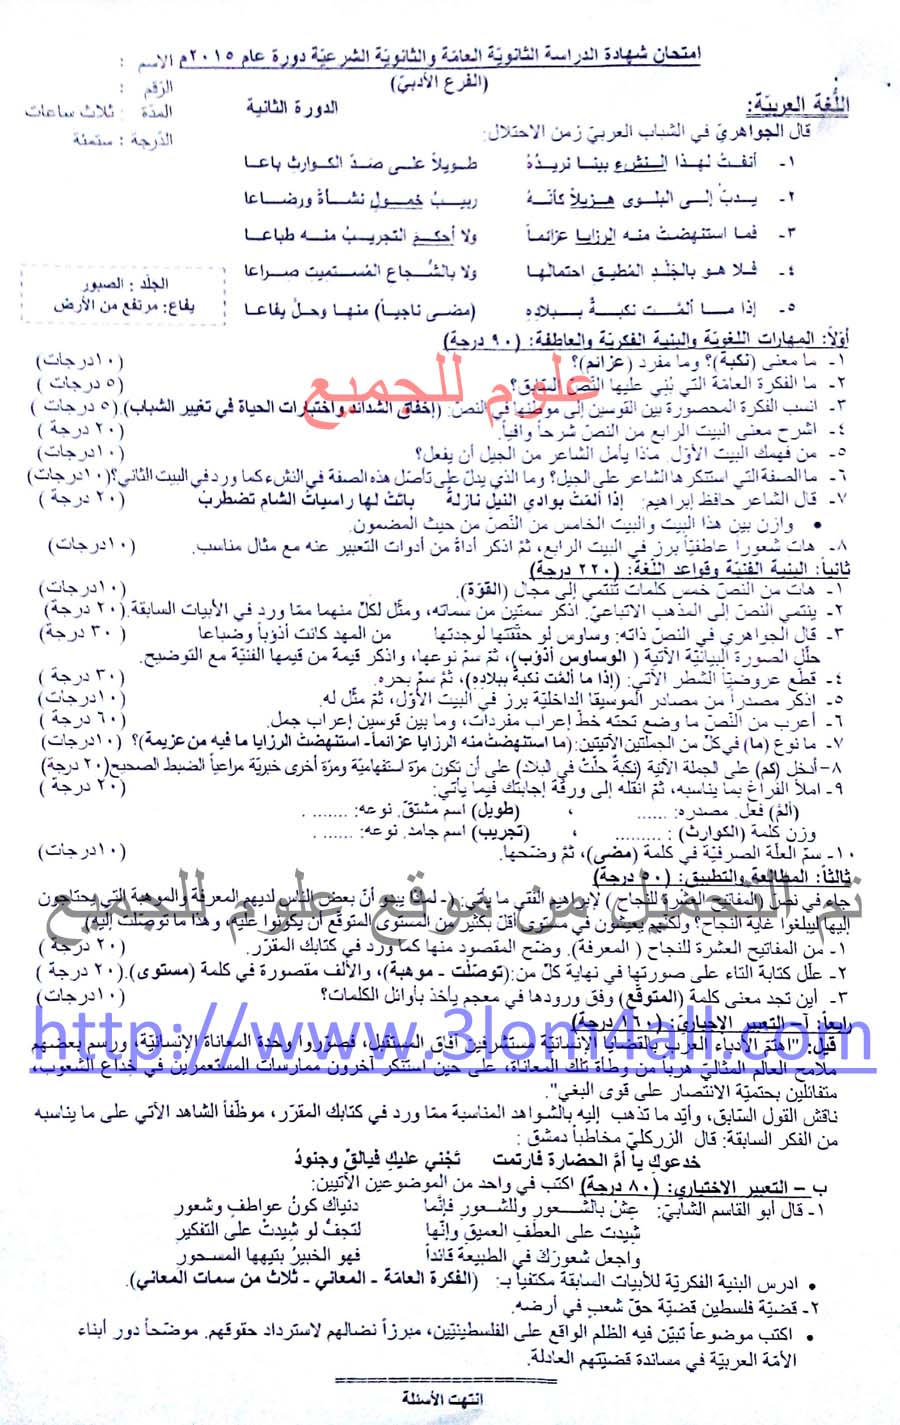 امتحان شهادة الدراسة الثانويّة العامّة والثانويّة الشرعيّة دورة عام ٢٠١٥م
الاسم :
(الفرع الأدبيّ)
الرّقم :
اللّغة العربيّة:
الدورة الثانية
المدّة : ثلاث ساعات
الدّرجة : ستمئة
قال الجواهريّ في الشباب العربيّ زمن الاحتلال:
١- أنفتُ لهذا النشءِ بينا نريدُهُ طويلاً على صدّ الكوارثِ باعا
٢- يدبّ إلى البلوى هزيلاً كأنّهُ ربيبُ خمولٍ نشأةً ورضاعا
٣- فما استنهضتْ منه الرزايا عزائماً ولا أحكمَ التجريبُ منه طباعا
٤- فلا هو بالجَلْدِ المُطيقِ احتمالَها ولا بالشُّجاعِ المُستميتِ صِراعا
٥- إذا ما ألمّت نكبةٌ ببلادِهِ (مضى ناجياً) منها وحلّ يفاعا
الجلْد : الصبور
يفاع: مرتفع من الأرض
أوّلاً: المهارات اللغويّة والبنية الفكريّة والعاطفة: (٩٠ درجة)
١- ما معنى (نكبة)؟ وما مفرد (عزائم)؟ (١٠درجات)
٢- ما الفكرة العامّة التي بُني عليها النّصّ السّابق؟ (٥ درجات )
٣- انسب الفكرة المحصورة بين القوسين إلى موطنها في النصّ: ((إخفاق الشدائد واختبارات الحياة في تغيير الشباب).(٥ درجات )
٤- اشرح معنى البيت الرابع من النصّ شرحاً وافياً. (٢٠ درجة )
٥- من فهمك البيت الأوّل. ماذا يأمل الشاعر من الجيل أن يفعل؟ (١٠درجات)
٦- ما الصفة التي استنكرها الشاعر على الجيل؟ وما الذي يدلّ على تأصّل هذه الصفة في النشء كما ورد في البيت الثاني؟(١٠درجات)
٧- قال الشاعر حافظ إبراهيم: إذا ألمّتْ بوادي النيل نازلةٌ باتتْ لها راسياتُ الشام تضطربُ (٢٠ درجة )
• وازن بين هذا البيت والبيت الخامس من النّصّ من حيث المضمون.
٨- هات شعوراً عاطفيّاً برز في البيت الرابع، ثمّ اذكر أداةً من أدوات التعبير عنه مع مثال مناسب. (١٠درجات)
ثانياً: البنية الفنيّة وقواعد اللّغة: (٢٢٠ درجة)
١- هات من النصّ خمس كلمات تنتمي إلى مجال (القوّة). (١٠درجات)
٢- ينتمي النصّ إلى المذهب الاتباعيّ. اذكر سمتين من سماته، ومثّل لكلّ منهما ممّا ورد في الأبيات السابقة.(٢٠ درجة )
٣- قال الجواهريّ في النصّ ذاته: وساوس لو حقّقتها لوجدتها من المهد كانت أذؤباً وضباعا (٣٠ درجة )
حلّل الصورة البيانيّة الآتية ( الوساوس أذؤب)، ثمّ سمّ نوعها، واذكر قيمة من قيمها الفنيّة مع التوضيح.
٤- قطّع عروضيّاً الشطر الآتي: (إذا ما ألمّت نكبةٌ ببلادِهِ)، ثُمّ سمّ بحره. (٣٠ درجة )
٥- اذكر مصدراً من مصادر الموسيقا الداخليّة برز في البيت الأوّل، ثمّ مثّل له. (١٠درجات)
٦- أعرب من النّصّ ما وضع تحته خطّ إعراب مفردات، وما بين قوسين إعراب جمل. (٦٠ درجة )
٧- ما نوع (ما) في كلّ من الجملتين الآتيتين: (ما استنهضت منه الرزايا عزائماً- استنهضتْ الرزايا ما فيه من عزيمة)؟ (١٠درجات)
٨- أدخل (كم) على الجملة الآتية (نكبةٌ حلّتْ في البلاد) على أن تكون مرّة استفهاميّة ومرّة أخرى خبريّة مراعياً الضبط الصحيح(٢٠ درجة)
٩- املأ الفراغ بما يناسبه، ثمّ انقله إلى ورقة إجابتك فيما يأتي: (٢٠ درجة )
(ألمّ) فعل. مصدره: ...... ، (طويل) اسم مشتقّ. نوعه: ....... .
وزن كلمة (الكوارث) : ......... ، (تجريب) اسم جامد. نوعه: ...... .
١٠- سمّ العلّة الصرفيّة في كلمة (مضى)، ثمّ وضّحها. (١٠درجات)
ثالثاً: المطالعة والتطبيق: (٥٠ درجة)
جاء في نصّ (المفاتيح العشرة للنجاح ) لإبراهيم الفقي ما يأتي: (- لماذا يبدو أنّ بعض الناس لديهم المعرفة والموهبة التي يحتاجون
إليها ليبلغوا غاية النجاح؟ ولكنّهم يعيشون في مستوى أقلّ بكثير من المستوى المتوقّع أن يكونوا عليه، وهذا ما توصّلت إليه)
١- من المفاتيح العشرة للنجاح ( المعرفة). وضّح المقصود منها كما ورد في كتابك المقرّر. (٢٠ درجة )
٢- علّل كتابة التاء على صورتها في نهاية كلّ من:(توصّلت - موهبة)، والألف مقصورة في كلمة (مستوى).(٢٠ درجة )
٣- أين تجد معنى كلمة (المتوقّع) وفق ورودها في معجم يأخذ بأوائل الكلمات؟ (١٠درجات)
رابعاً: أ- التعبير الإجباريّ: (١٦٠ درجة)
قيل: "اهتمّ الأدباء العرب بالقضايا الإنسانيّة مستشرفين آفاق المستقبل، فصوّروا وحدة المعاناة الإنسانيّة، ورسم بعضهم
ملامح العالم المثاليّ هرباً من وطأة تلك المعاناة، على حين استنكر آخرون ممارسات المستعمرين في خداع الشعوب،
متفائلين بحتميّة الانتصار على قوى البغي".
ناقش القول السّابق، وأيّد ما تذهب إليه بالشّواهد المناسبة ممّا ورد في كتابك المقرّر، موظّفاً الشاهد الآتي على ما يناسبه
من الفكر السابقة: قال الزركليّ مخاطباً دمشق :
خدعوكِ يا أمَّ الحضارة فارتمت تجْني عليكِ فيالقٌ وجنودُ
ب – التعبير الاختياري: (٨٠ درجة) اكتب في واحد من الموضوعين الآتيين:
١- قال أبو القاسم الشابيّ: عِشْ بالشّعورِ وللشّعورِ فإنّما دنياك كونُ عواطفٍ وشعورِ
شِيدت على العطفِ العميقِ وإنّها لتجفُّ لو شِيدتْ على التفكيرِ
واجعل شعورَكَ في الطبيعة قائداً فهو الخبيرُ بتيهها المسحورِ
• ادرس البنية الفكريّة للأبيات السابقة مكتفياً بـ: (الفكرة العامّة - المعاني - ثلاث من سمات المعاني).
٢- قضيّة فلسطين قضيّة حقّ شعبٍ في أرضه.
• اكتب موضوعاً تبيّن فيه الظلم الواقع على الفلسطينيّين، مبرزاً نضالهم لاسترداد حقوقهم. موضّحاً دور أبناء
الأمّة العربيّة في مساندة قضيّتهم العادلة.
انتهت الأسئلة
علوم للجميع
تم التحميل من موقع علوم للجميع
http://www.3lom4all.com